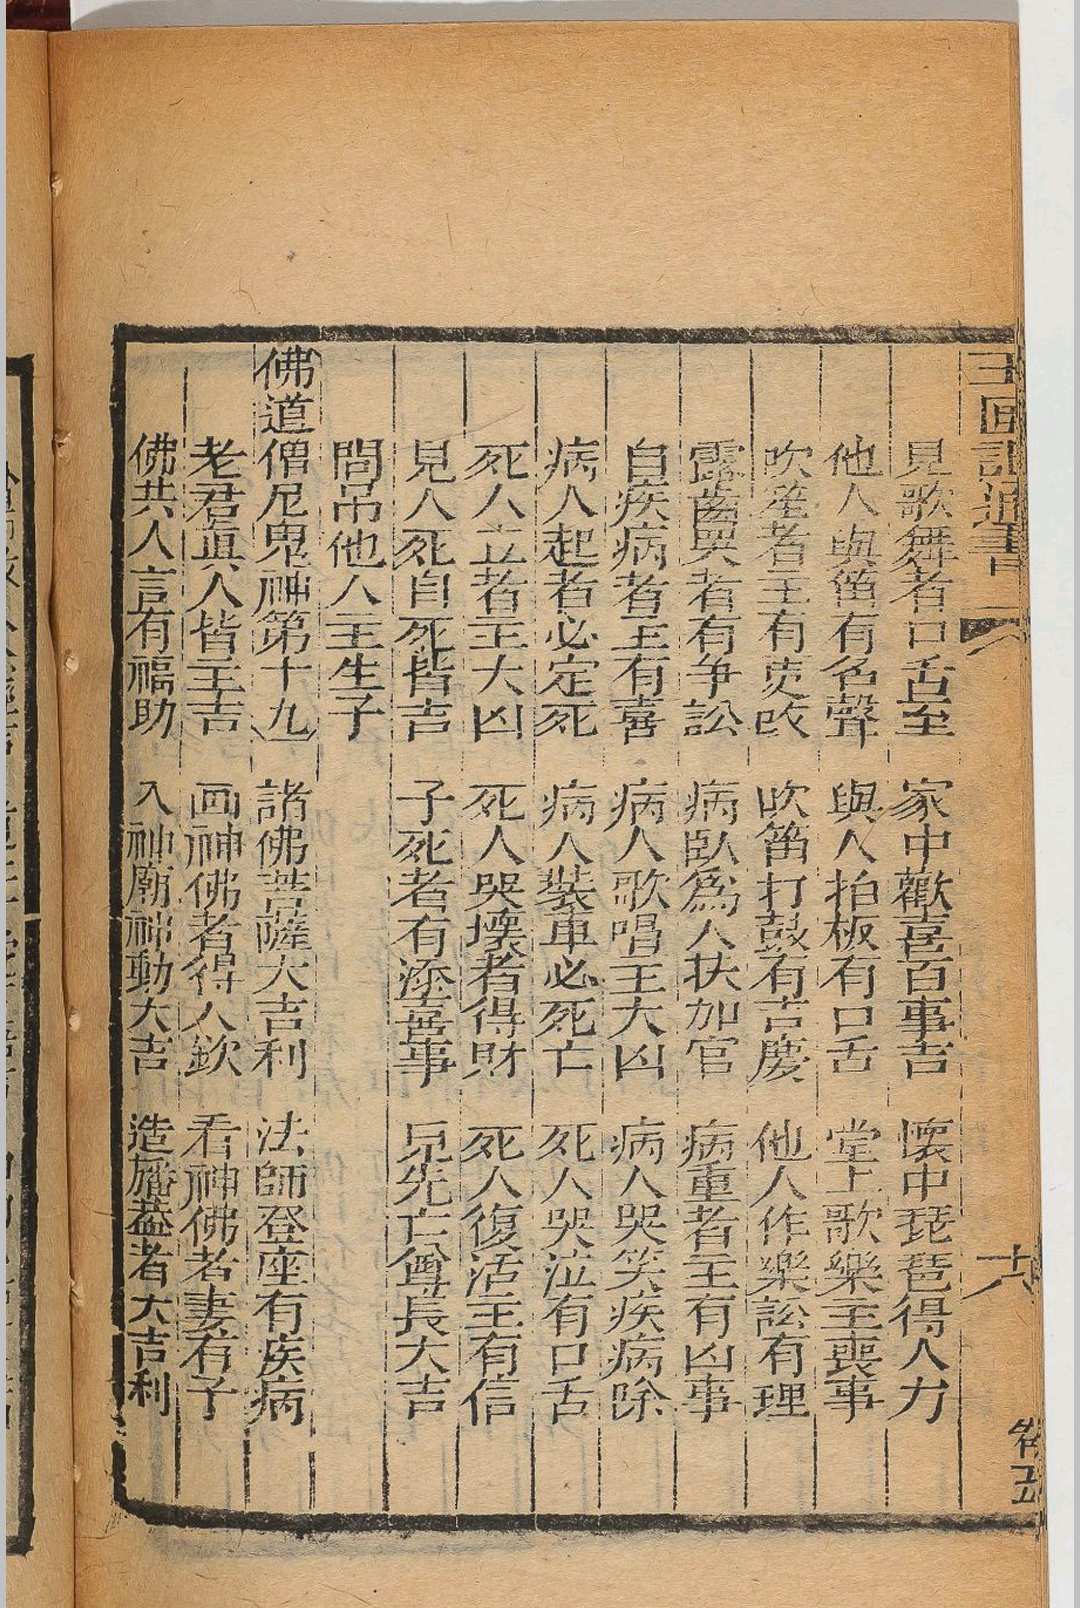 玉匣記通書
十六
見歌舞者口舌至 家中歡喜百事吉 懷中琵琶得人力
他人與笛有名聲 與人拍板有口舌 堂上歌樂主喪事
吹笙者主有更改 吹笛打鼓有吉慶 他人作樂訟有理
露齒哭者有争訟 病臥為人扶加官 病重者主有凶事
自疾病者主有喜 病人歌唱主大凶 病人哭笑疾病除
病人起者必定死 病人裝車必死亡 死人哭泣有口舌
死人立者主大凶 死人哭壞者得財 死人復活主有信
見人死自死皆吉 子死者有添喜事 見先亡尊長大吉
問吊他人主生子
佛道僧尼鬼神第十九 諸佛菩薩大吉利 法師登座有疾病
老君真人皆主吉 画神佛者得人欽 看神佛者妻有子
佛共人言有福助 入神廟神動大吉 造旛蓋者大吉利